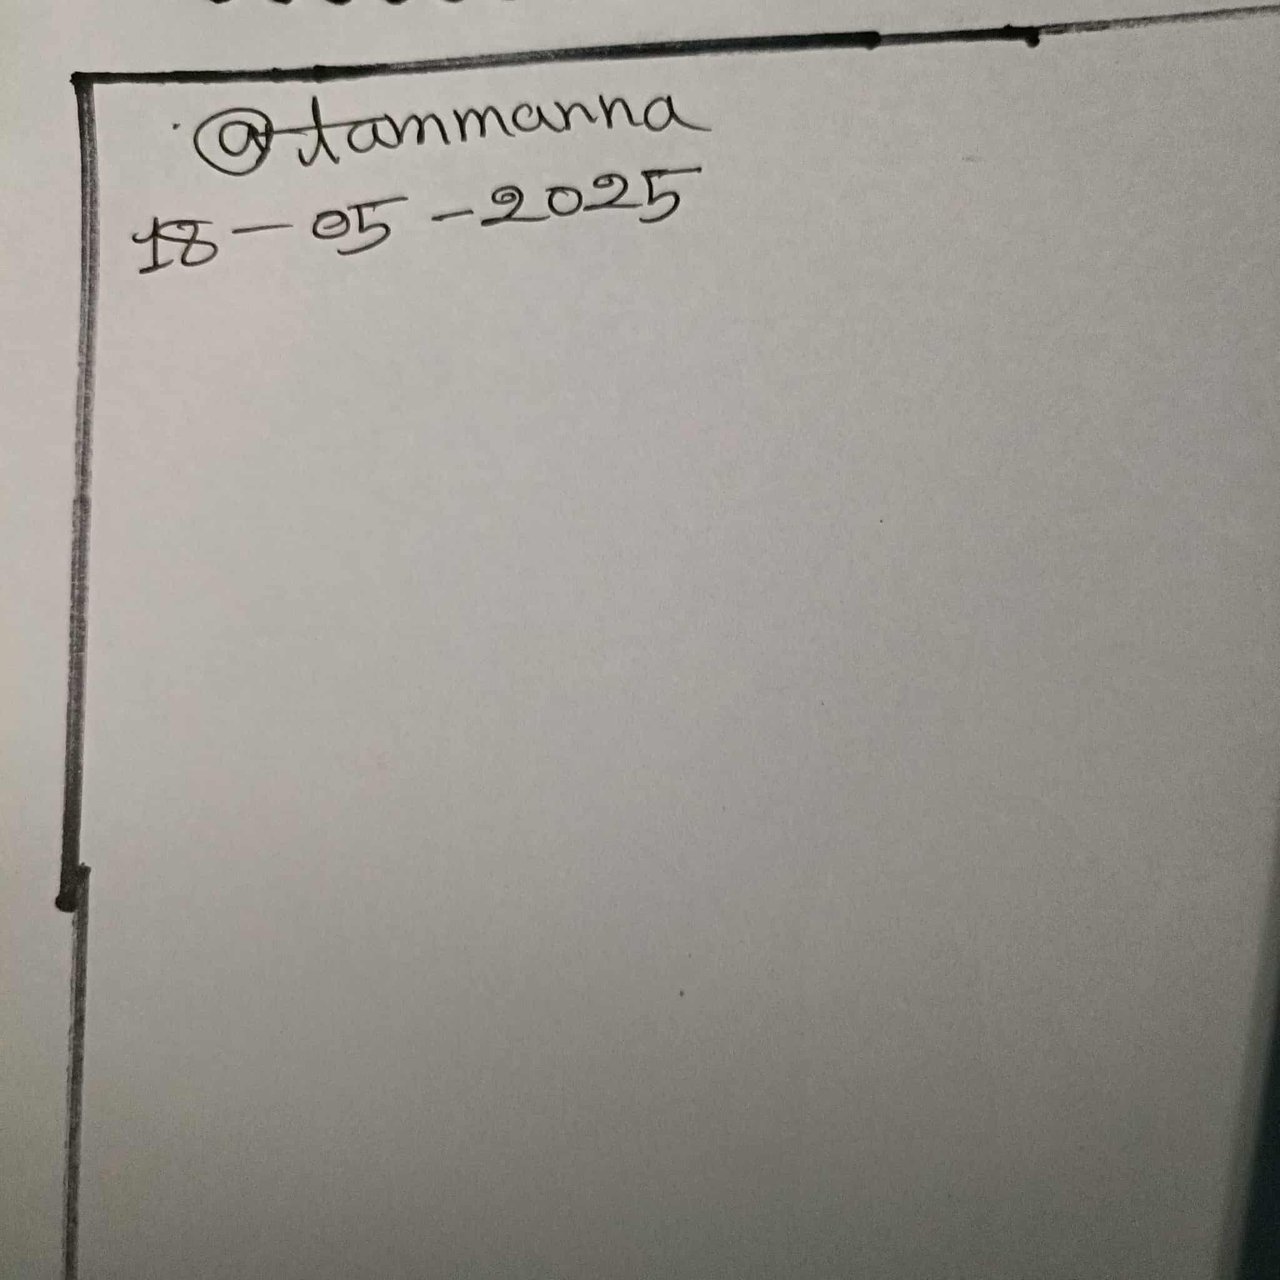 @tammanna
18-05-2025